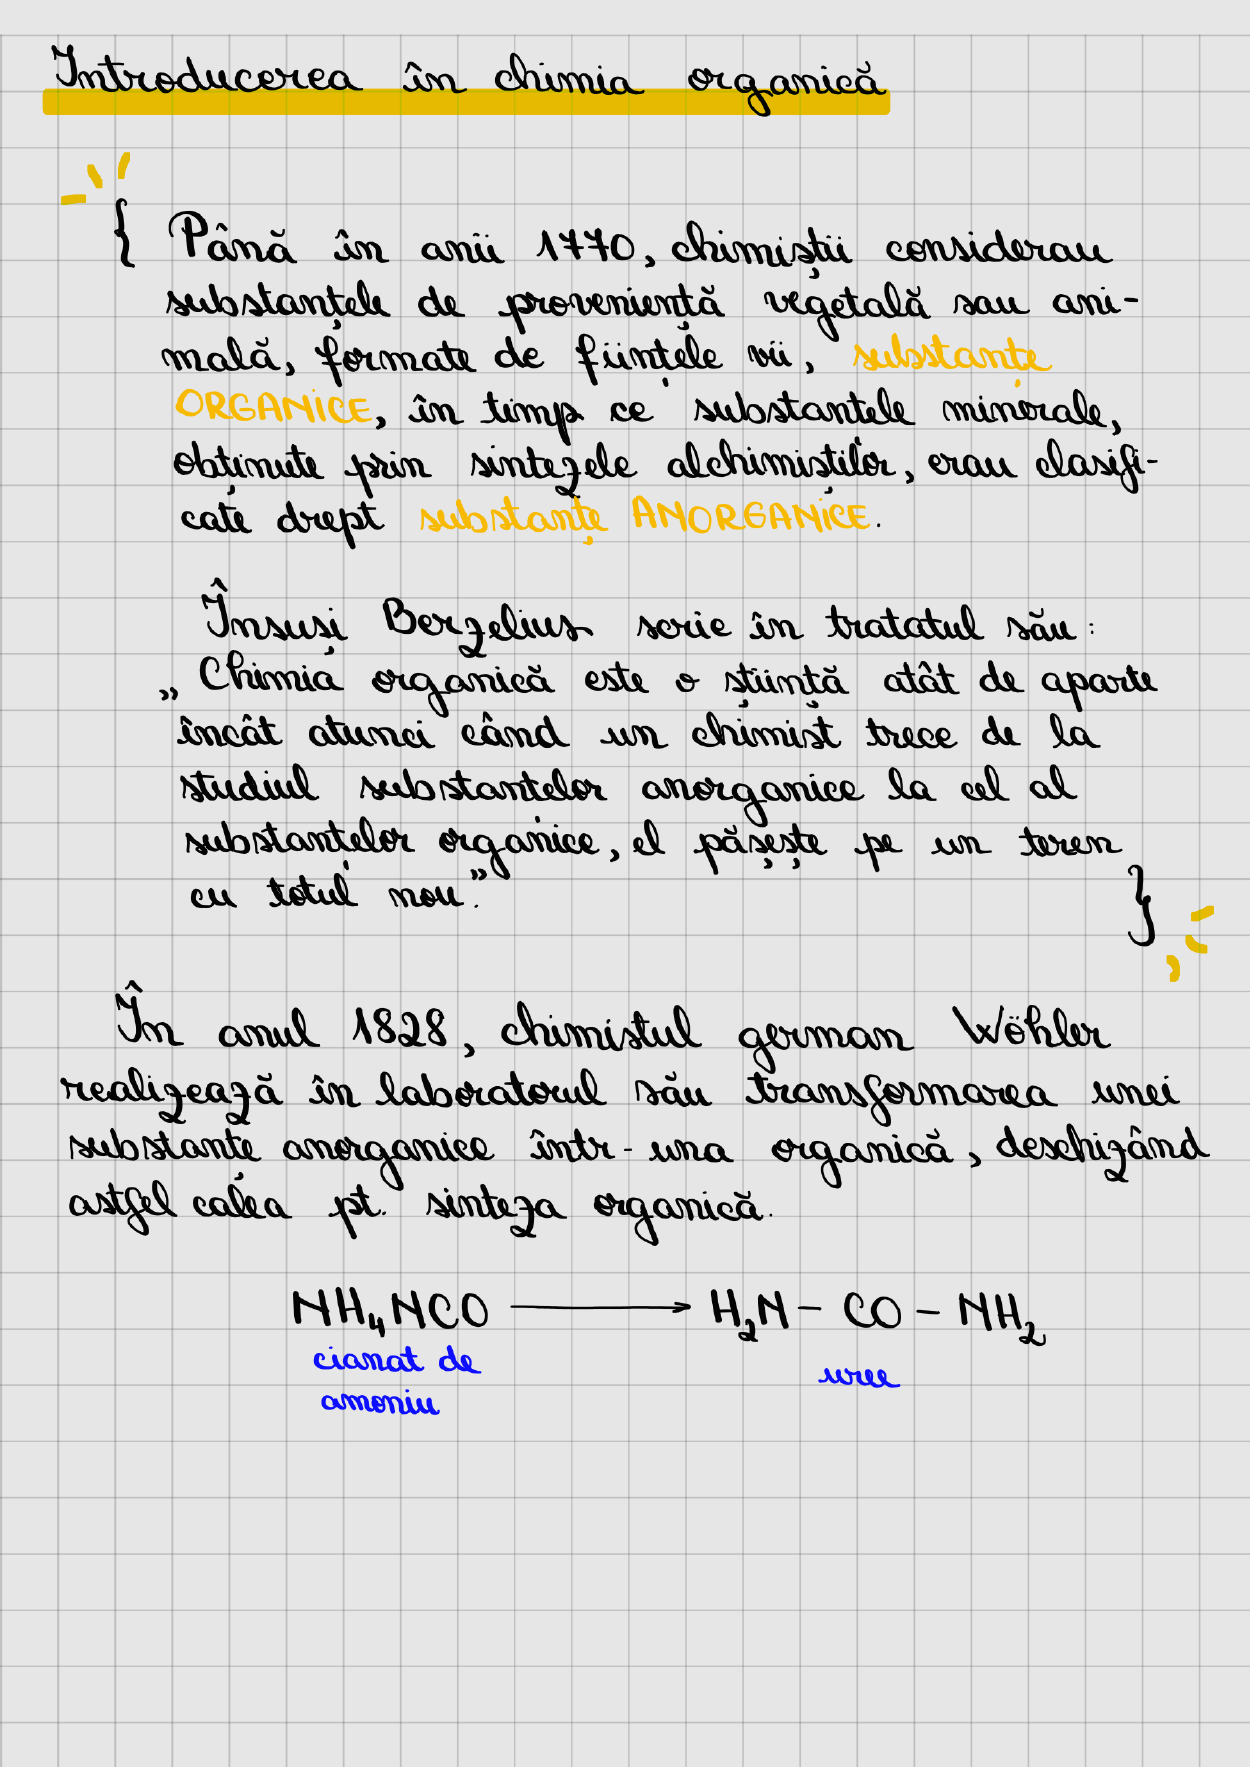 Introducerea în chimia organică
{ Până în anii 1770, chimiștii considerau
substanțele de proveniență vegetală sau ani-
mală, formate de ființele vii, substanțe
ORGANICE, în timp ce substanțele minerale,
obținute prin sintezele alchimiștilor, erau clasifi-
cate drept substanțe ANORGANICE.
Însuși Berzelius scrie în tratatul său:
„Chimia organică este o știință atât de aparte
încât atunci când un chimist trece de la
studiul substanțelor anorganice la cel al
substanțelor organice, el pășește pe un teren
cu totul nou.” }
În anul 1828, chimistul german Wöhler
realizează în laboratorul său transformarea unei
substanțe anorganice într-una organică, deschizând
astfel calea pt. sinteza organică.
NH₄NCO → H₂N – CO – NH₂
cianat de uree
amoniu